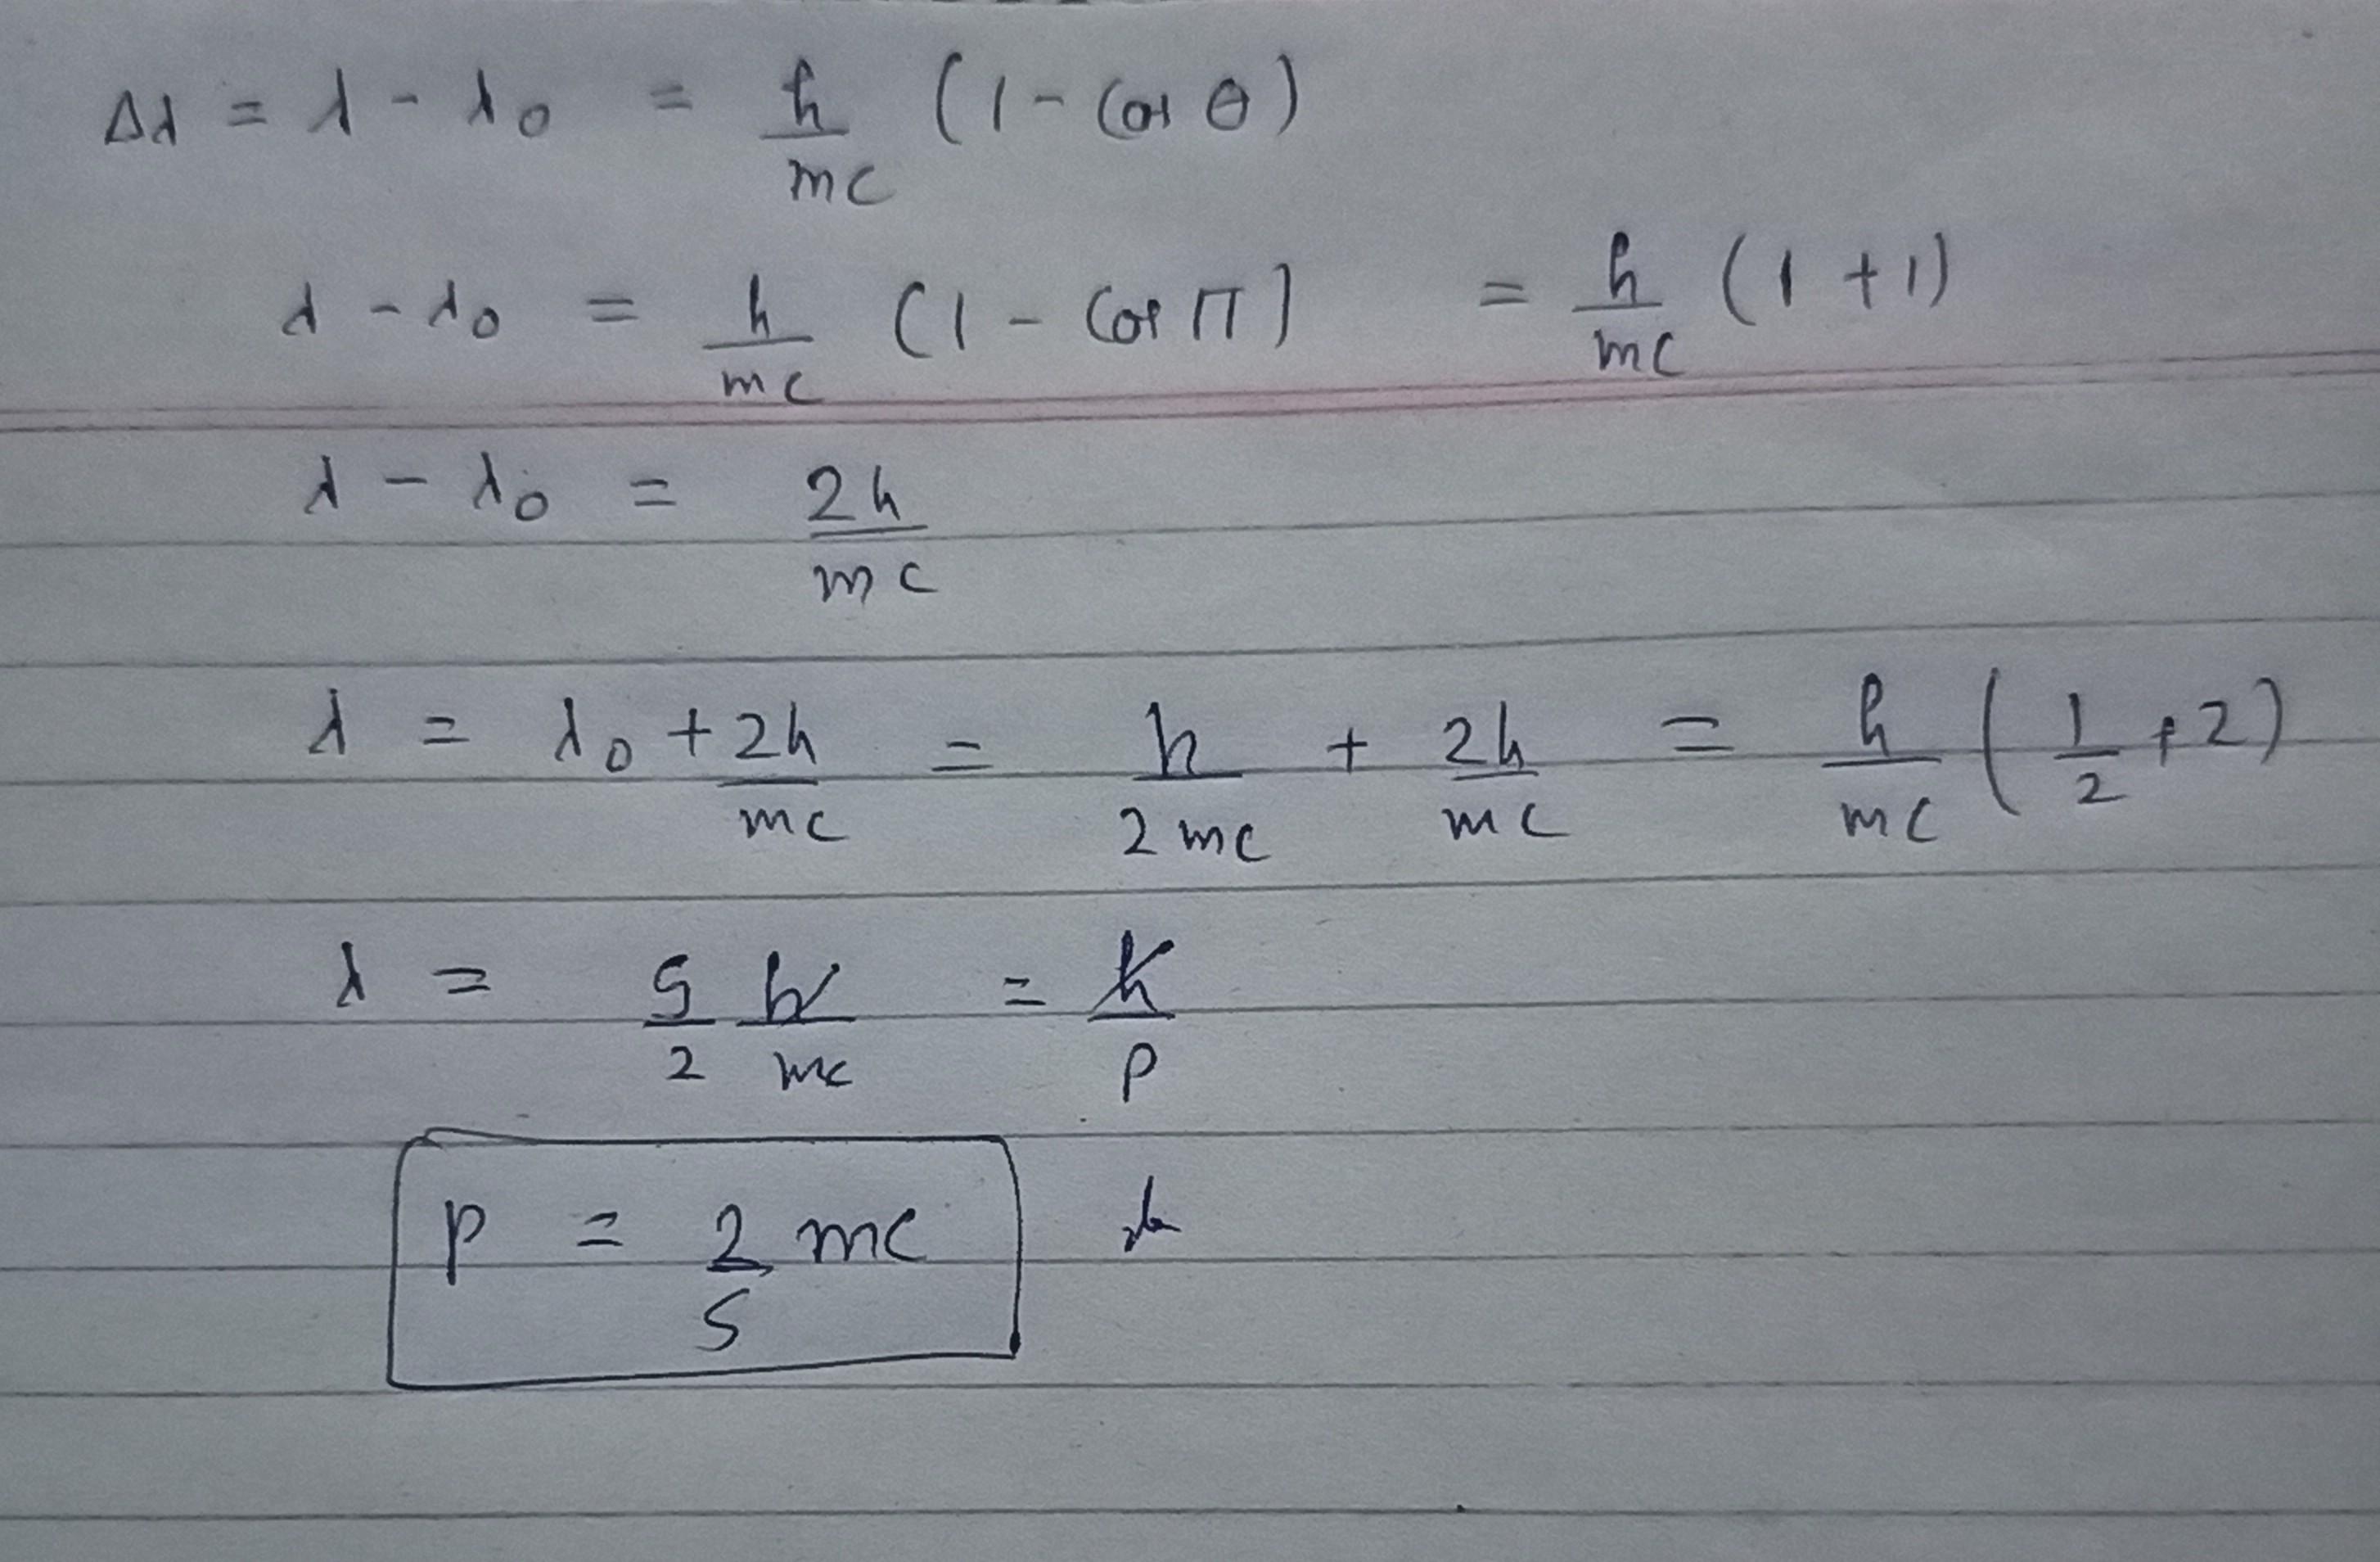 Δλ = λ - λ₀ = h/mc (1 - Cos θ)
λ - λ₀ = h/mc (1 - Cos π) = h/mc (1 + 1)
λ - λ₀ = 2h/mc
λ = λ₀ + 2h/mc = h/2mc + 2h/mc = h/mc (1/2 + 2)
λ = 5/2 h/mc = h/p
p = 2/5 mc